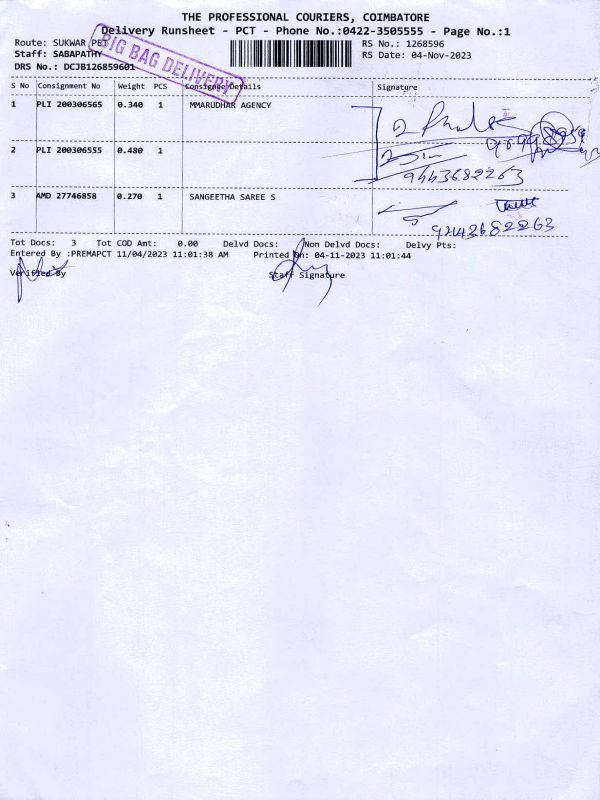 THE PROFESSIONAL COURIERS, COIMBATORE
Delivery Runsheet - PCT - Phone No.:0422-3505555 - Page No.:1
Route: SUKWAR PET
RS No.: 1268596
Staff: SABAPATHY
RS Date: 04-Nov-2023
DRS No.: DCJB126859601
BIG BAG DELIVERY
S No Consignment No Weight PCS Consignee Details Signature
1 PLI 200306565 0.340 1 MMARUDHAR AGENCY
2 PLI 200306555 0.480 1
9443682263
3 AMD 27746858 0.270 1 SANGEETHA SAREE S
Tot Docs: 3 Tot COD Amt: 0.00 Delvd Docs: Non Delvd Docs: Delvy Pts:
Entered By :PREMAPCT 11/04/2023 11:01:38 AM Printed On: 04-11-2023 11:01:44
Verified By Staff Signature